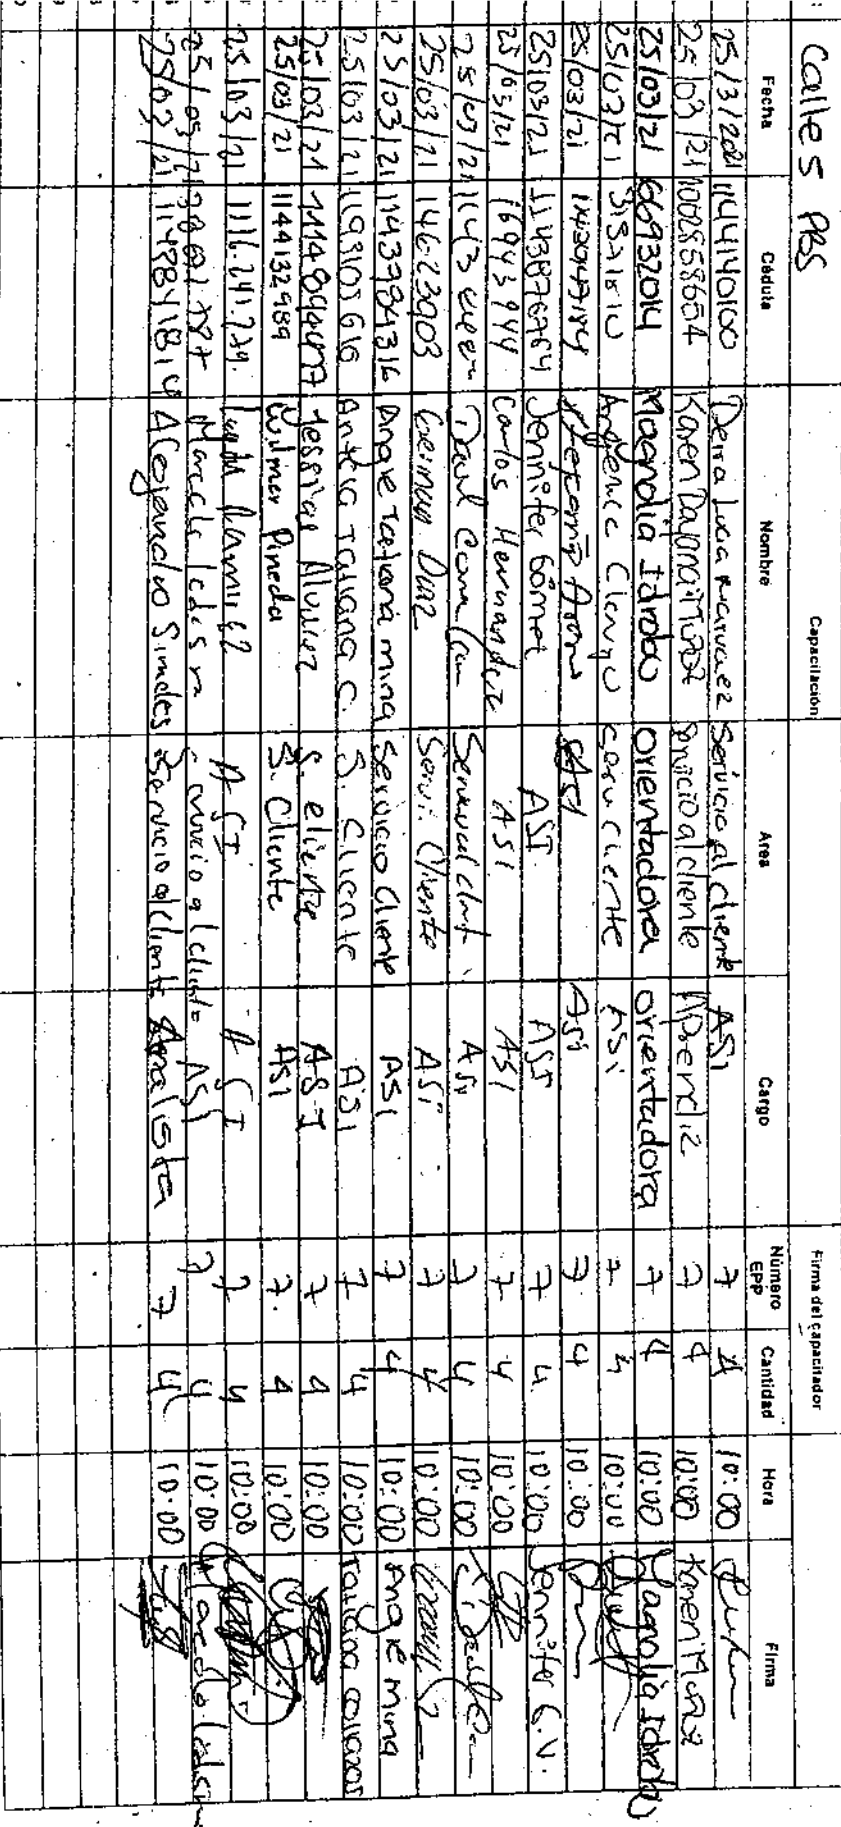 Calle 5 PBS
Capacitación: Firma del capacitador
Fecha Cédula Nombre Area Cargo Número EPP Cantidad Hora Firma
25/3/2021 1144140100 Deira Lucia Servicio al cliente ASI 7 4 10:00
25/03/21 1002858654 Karen Dayana Muñoz Servicio al cliente Aprendiz 7 4 10:00 Karen Muñoz
25/03/21 66932014 Magnolia Idrobo Orientadora Orientadora 7 4 10:00 Magnolia Idrobo
25/03/21 Angelica Clavijo Serv cliente ASI 7 4 10:00
25/03/21 ASI ASI 7 4 10:00
25/03/21 1143876764 Jennifer Gómez ASI ASI 7 4 10:00 Jennifer G.V.
25/03/21 16943944 Carlos Hernandez ASI ASI 7 4 10:00
25/03/21 1143 David ASI 7 4 10:00
25/03/21 14623903 German Diaz Servi. Cliente ASI 7 4 10:00
25/03/21 1143984316 Angie Tatiana mina Servicio Cliente ASI 7 4 10:00 Angie mina
25/03/21 1193103616 Tatiana C. S. Cliente ASI 7 4 10:00 Tatiana collazos
25/03/21 Yessica Alvarez S. cliente ASI 7 4 10:00
25/03/21 1144132989 Wilmer Pineda S. Cliente ASI 7 4 10:00
25/03/21 1116.241.779. Ramirez ASI ASI 7 4 10:00
25/03/21 Marcela Ledesma Servicio al cliente ASI 7 4 10:00 Marcela Ledesma
25/03/21 1143841814 Alejandro Servicio al cliente Analista 7 4 10:00